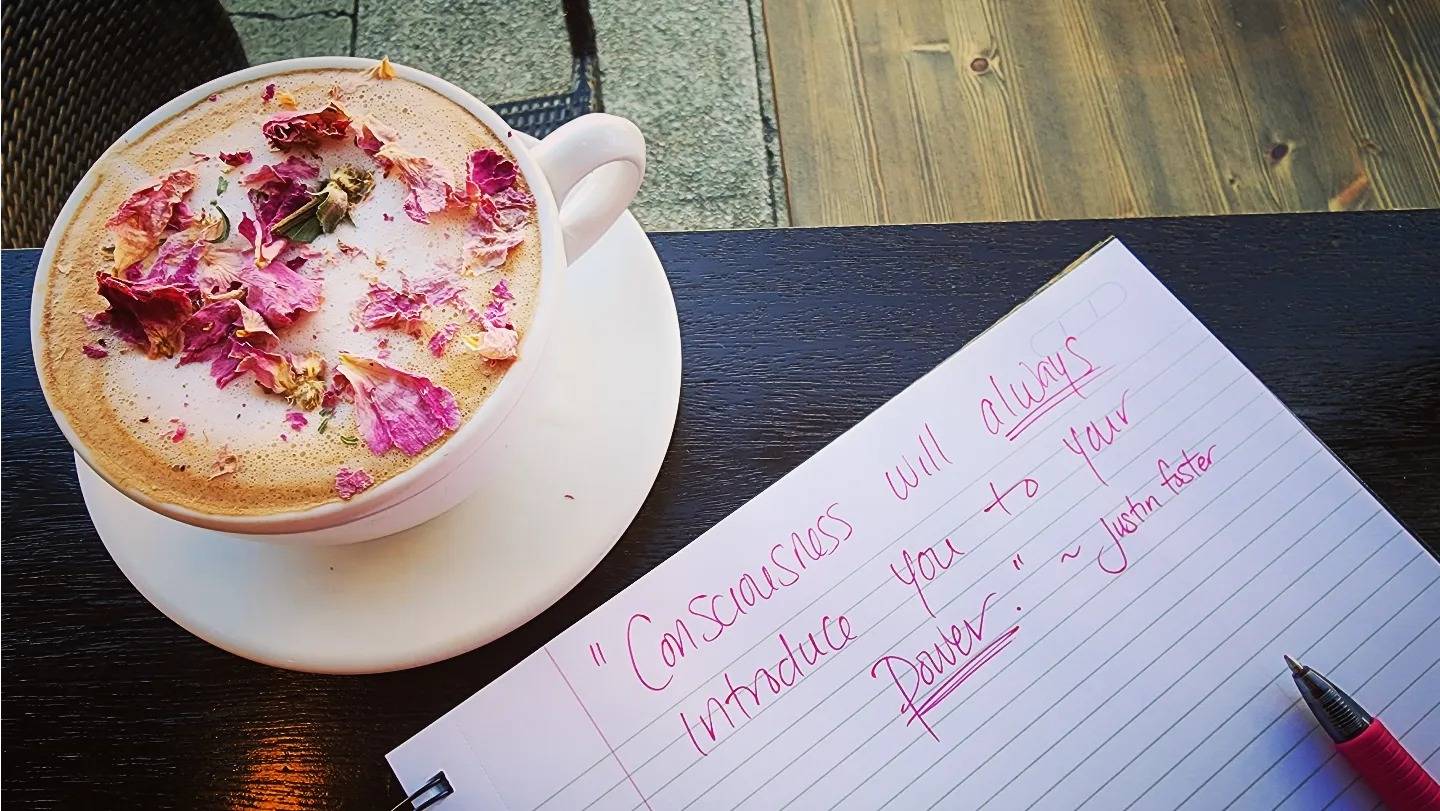 "Consciousness will always
introduce you to your
Power." ~ Justin Foster